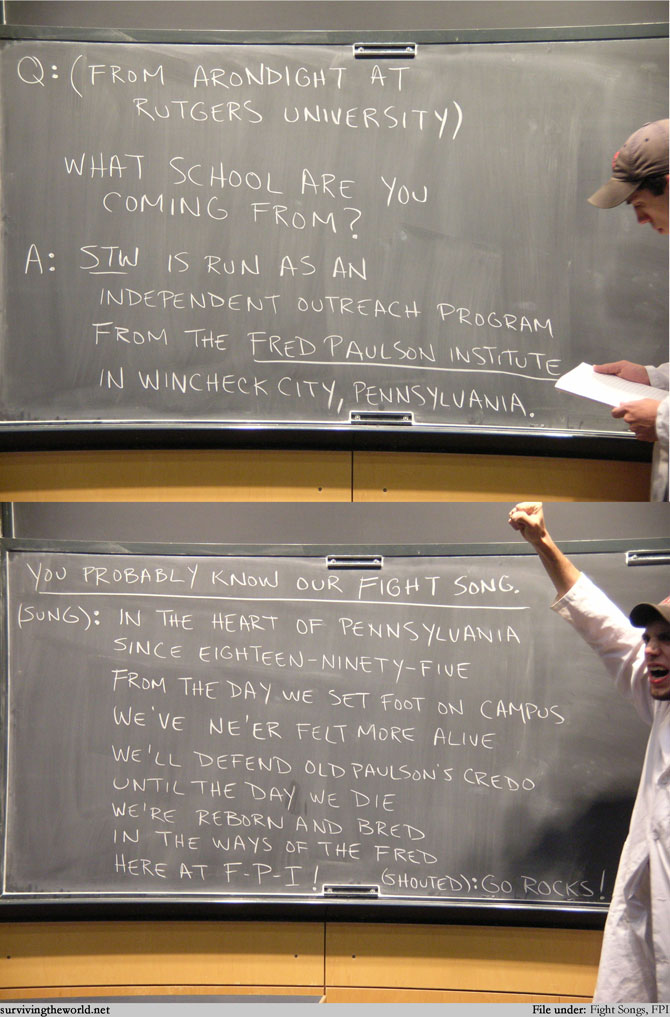 Q: (FROM ARONDIGHT AT
RUTGERS UNIVERSITY)
WHAT SCHOOL ARE YOU
COMING FROM?
A: STW IS RUN AS AN
INDEPENDENT OUTREACH PROGRAM
FROM THE FRED PAULSON INSTITUTE
IN WINCHECK CITY, PENNSYLVANIA.
YOU PROBABLY KNOW OUR FIGHT SONG.
(SUNG): IN THE HEART OF PENNSYLVANIA
SINCE EIGHTEEN-NINETY-FIVE
FROM THE DAY WE SET FOOT ON CAMPUS
WE'VE NE'ER FELT MORE ALIVE
WE'LL DEFEND OLD PAULSON'S CREDO
UNTIL THE DAY WE DIE
WE'RE REBORN AND BRED
IN THE WAYS OF THE FRED
HERE AT F-P-I! (SHOUTED): GO ROCKS!
survivingtheworld.net File under: Fight Songs, FPI